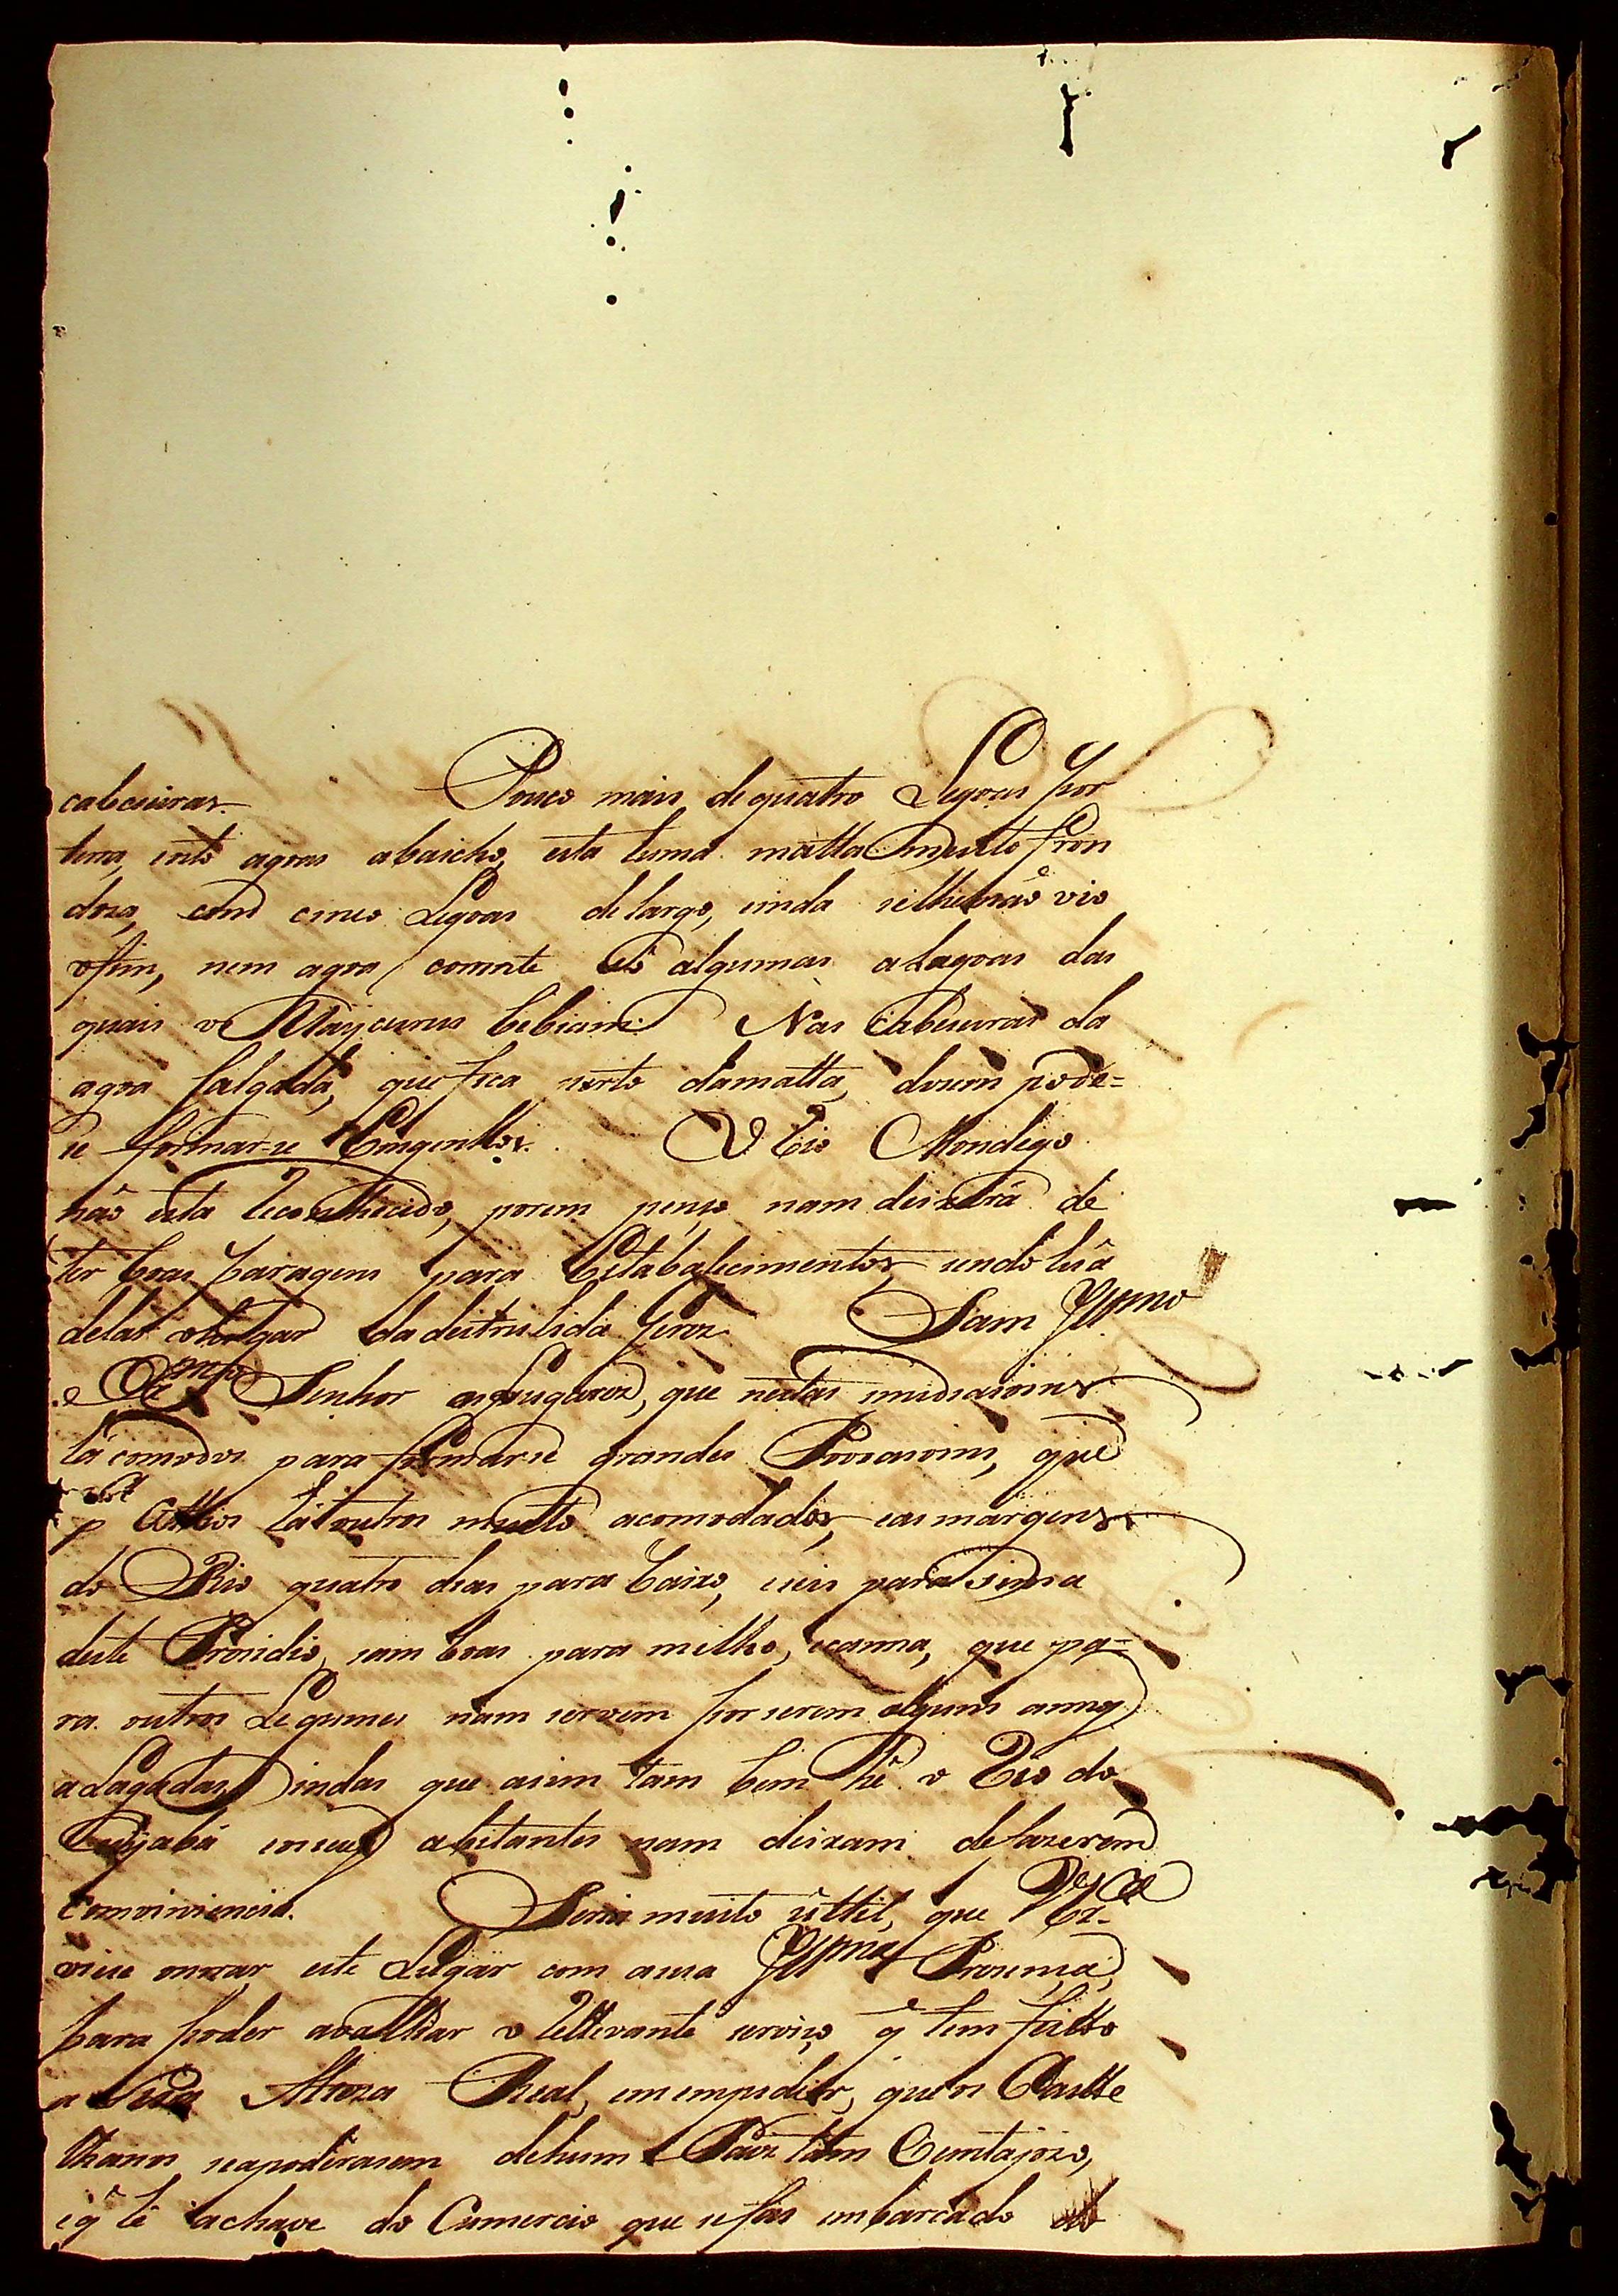 cabeceiras. Pouco mais de quatro Legoas por
terra, agoas abaicho, esta huma matta muito fron
doza, com cinco Legoas de largo, einda selhe não vio
ofim, nem agoa corrente só algumas alagoas das
quais o Uaÿcurus bebiam. Nas Cabeseiras da
agoa salgada, que fica perto damatta, dizem pode=
se formar-se Emgenhos. O Rio Mondego
não esta reconhecido, porem penso nam deixará de
ter boas paragens para Estabalecimentos sendo huã
delas olugar da destruhida Xerez. Sam Illmo
e Exmo Senhor os Lugares, que nestas
há comodos para formarse grandes Povoasoins, que
p Citios há outros muito acomodados, eas margens
do Rio quatro dias para baixo, eseis para sima
deste Prezidio, sam boas para milho, ecanna, que pa=
ra outros Legumes nam servem por serem alguns annos
alagadas, indas que asim tam bem hé o Rio do
Cuÿabá eoseus abitantes nam deixam defazerem
comviniencia. Seria muito uttil, que V. Exca
viese onrrar este Lugar com asua Illma Prezença,
para poder avalliar o rellevante serviço q̃ tem feitto
a Sua Alteza Real, em empedir, que os Castte
lhanos seapoderasem dehum Paiz tam Ventajozo,
eq̃ hé achave do Cumercio que sefas embarcado